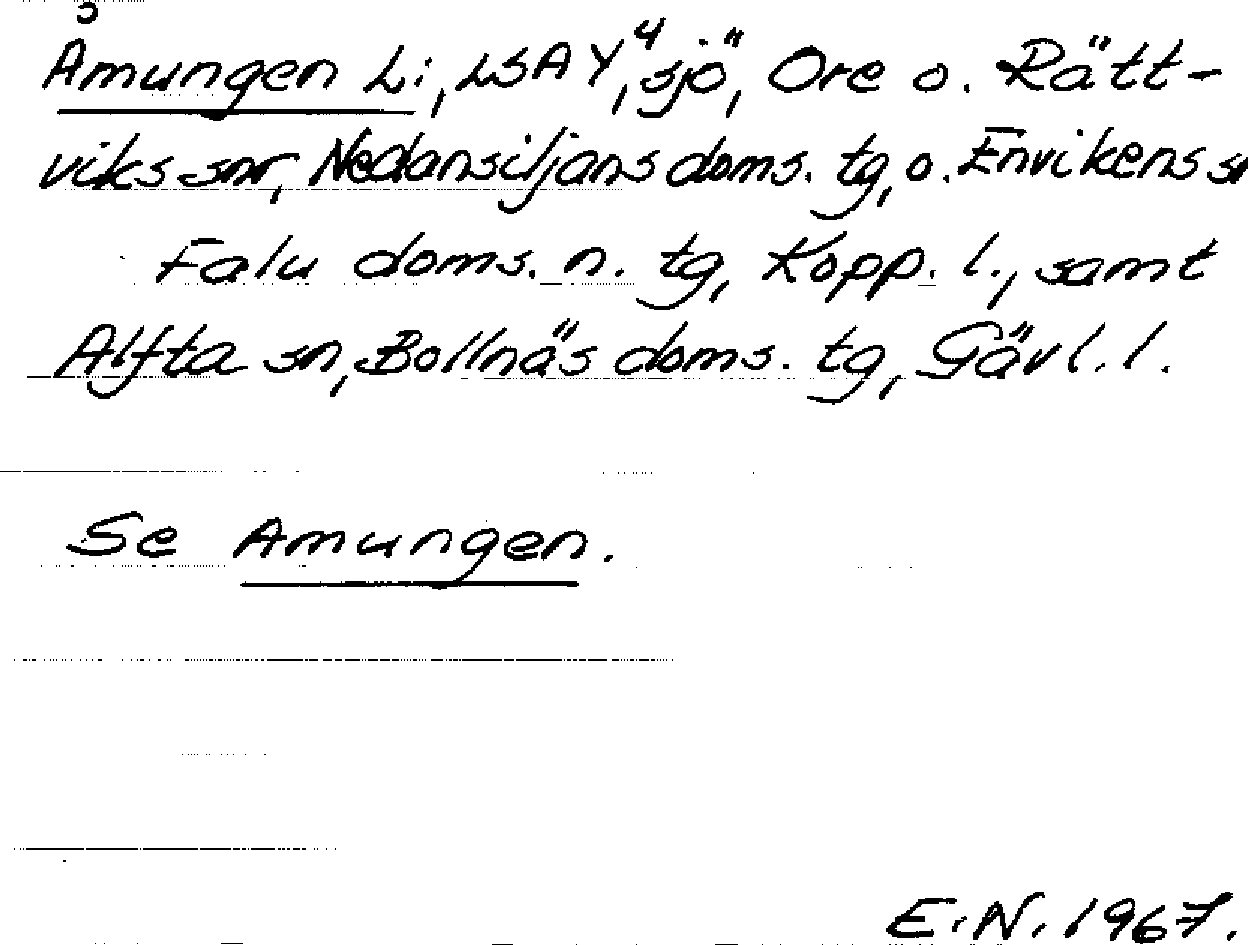 Åmungen Li, LSA Y⁴, sjö, Ore o. Rätt-
viks snr, Nedansiljans doms. tg, o. Envikens sn
Falu doms. n. tg, Kopp. l., samt
Alfta sn, Bollnäs doms. tg, Gävl. l.
Se Amungen.
E.N. 1967.